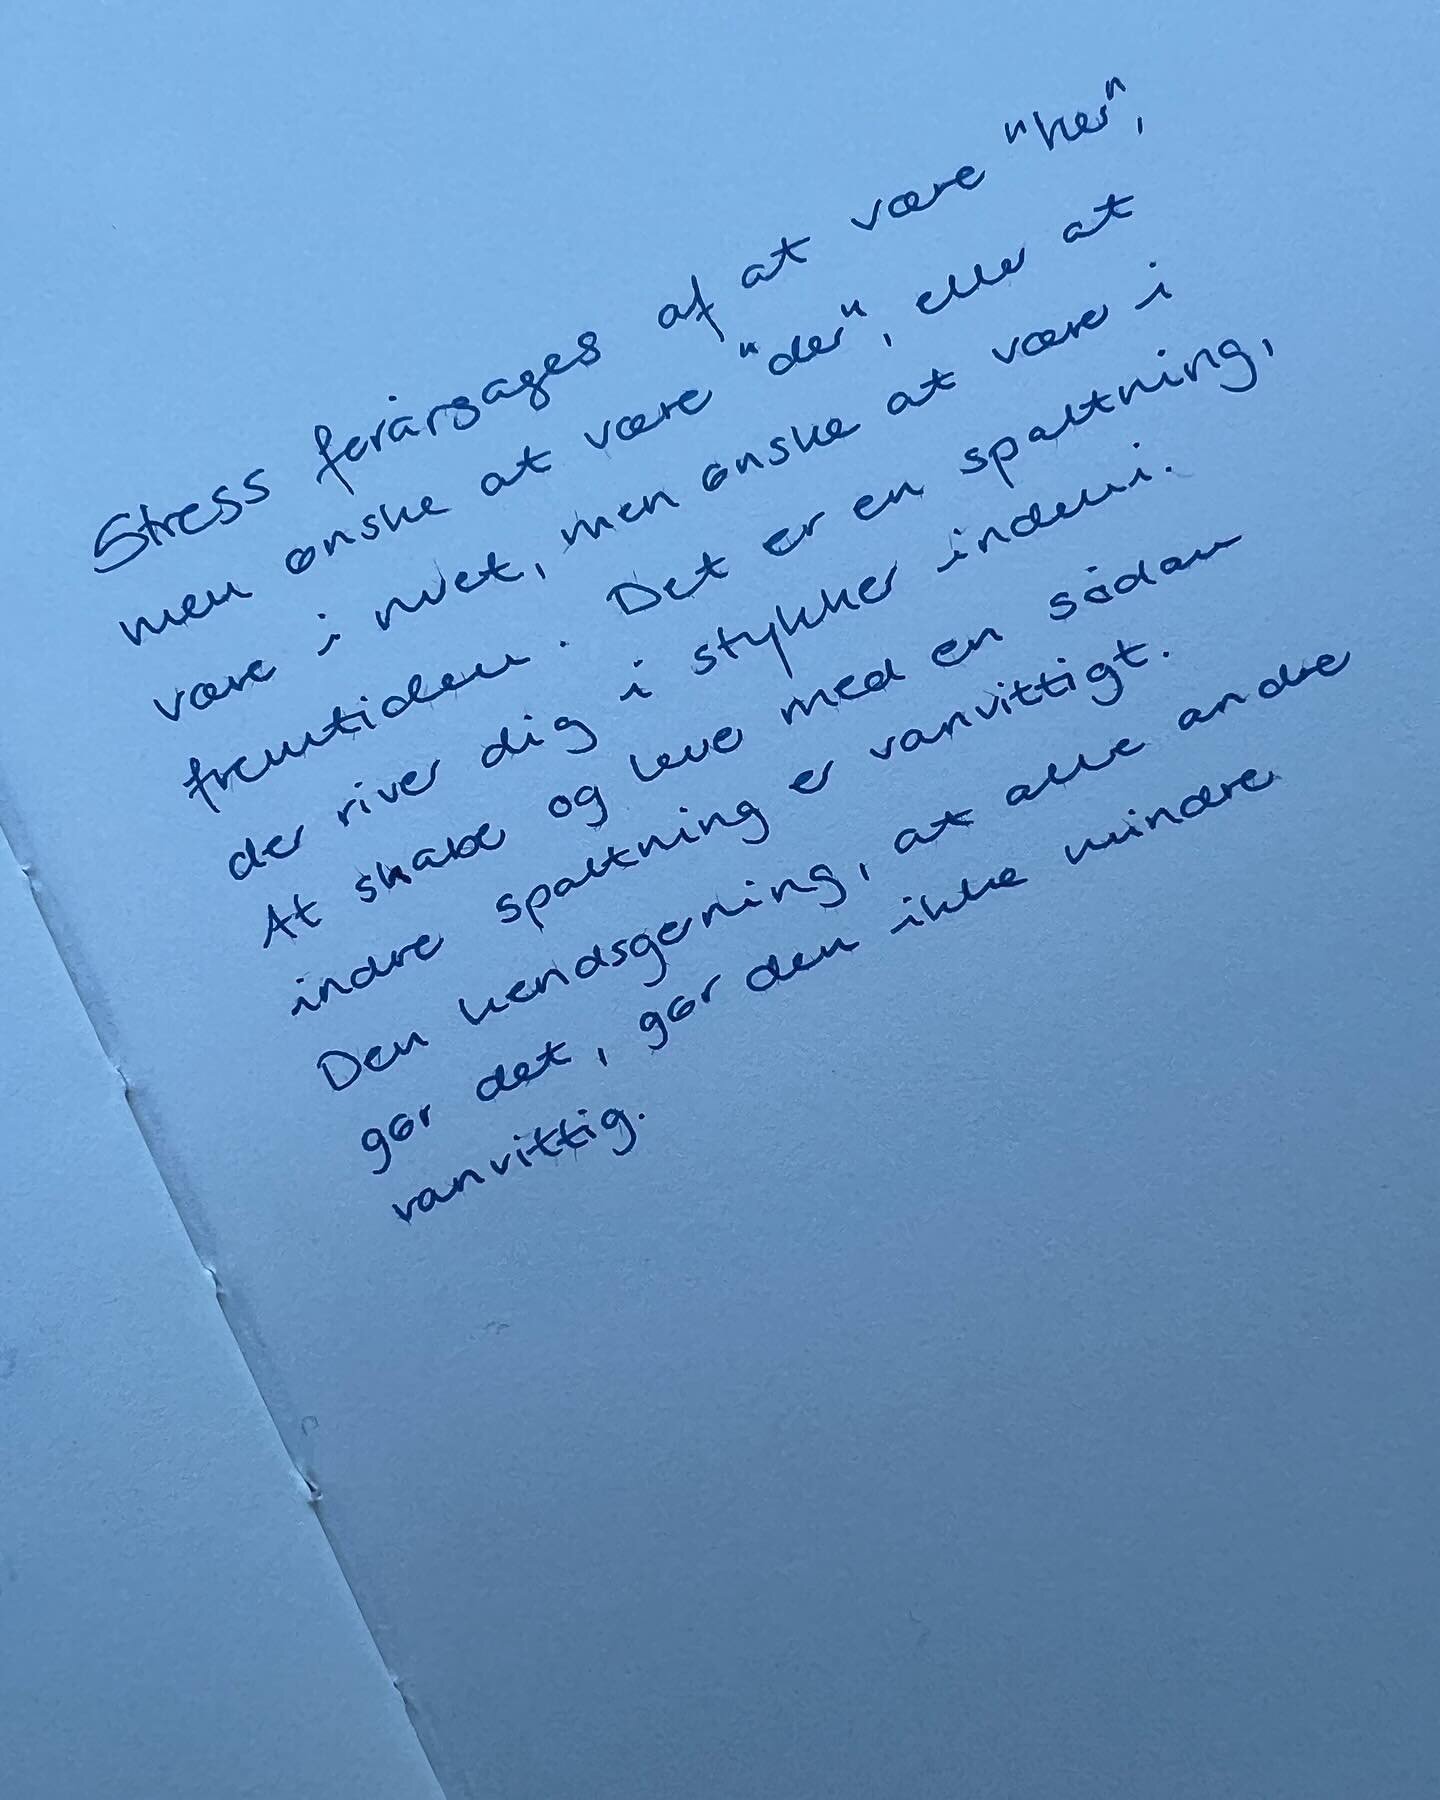 Stress forårsages af at være "her",
men ønske at være "der", eller at
være i nuet, men ønske at være i
fremtiden. Det er en spaltning,
der river dig i stykker indeni.
At skabe og leve med en sådan
indre spaltning er vanvittigt.
Den kendsgerning, at alle andre
gør det, gør den ikke mindre
vanvittig.